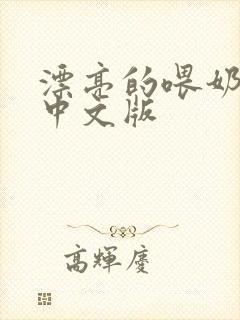 漂亮的喂奶
中文版
高輝慶